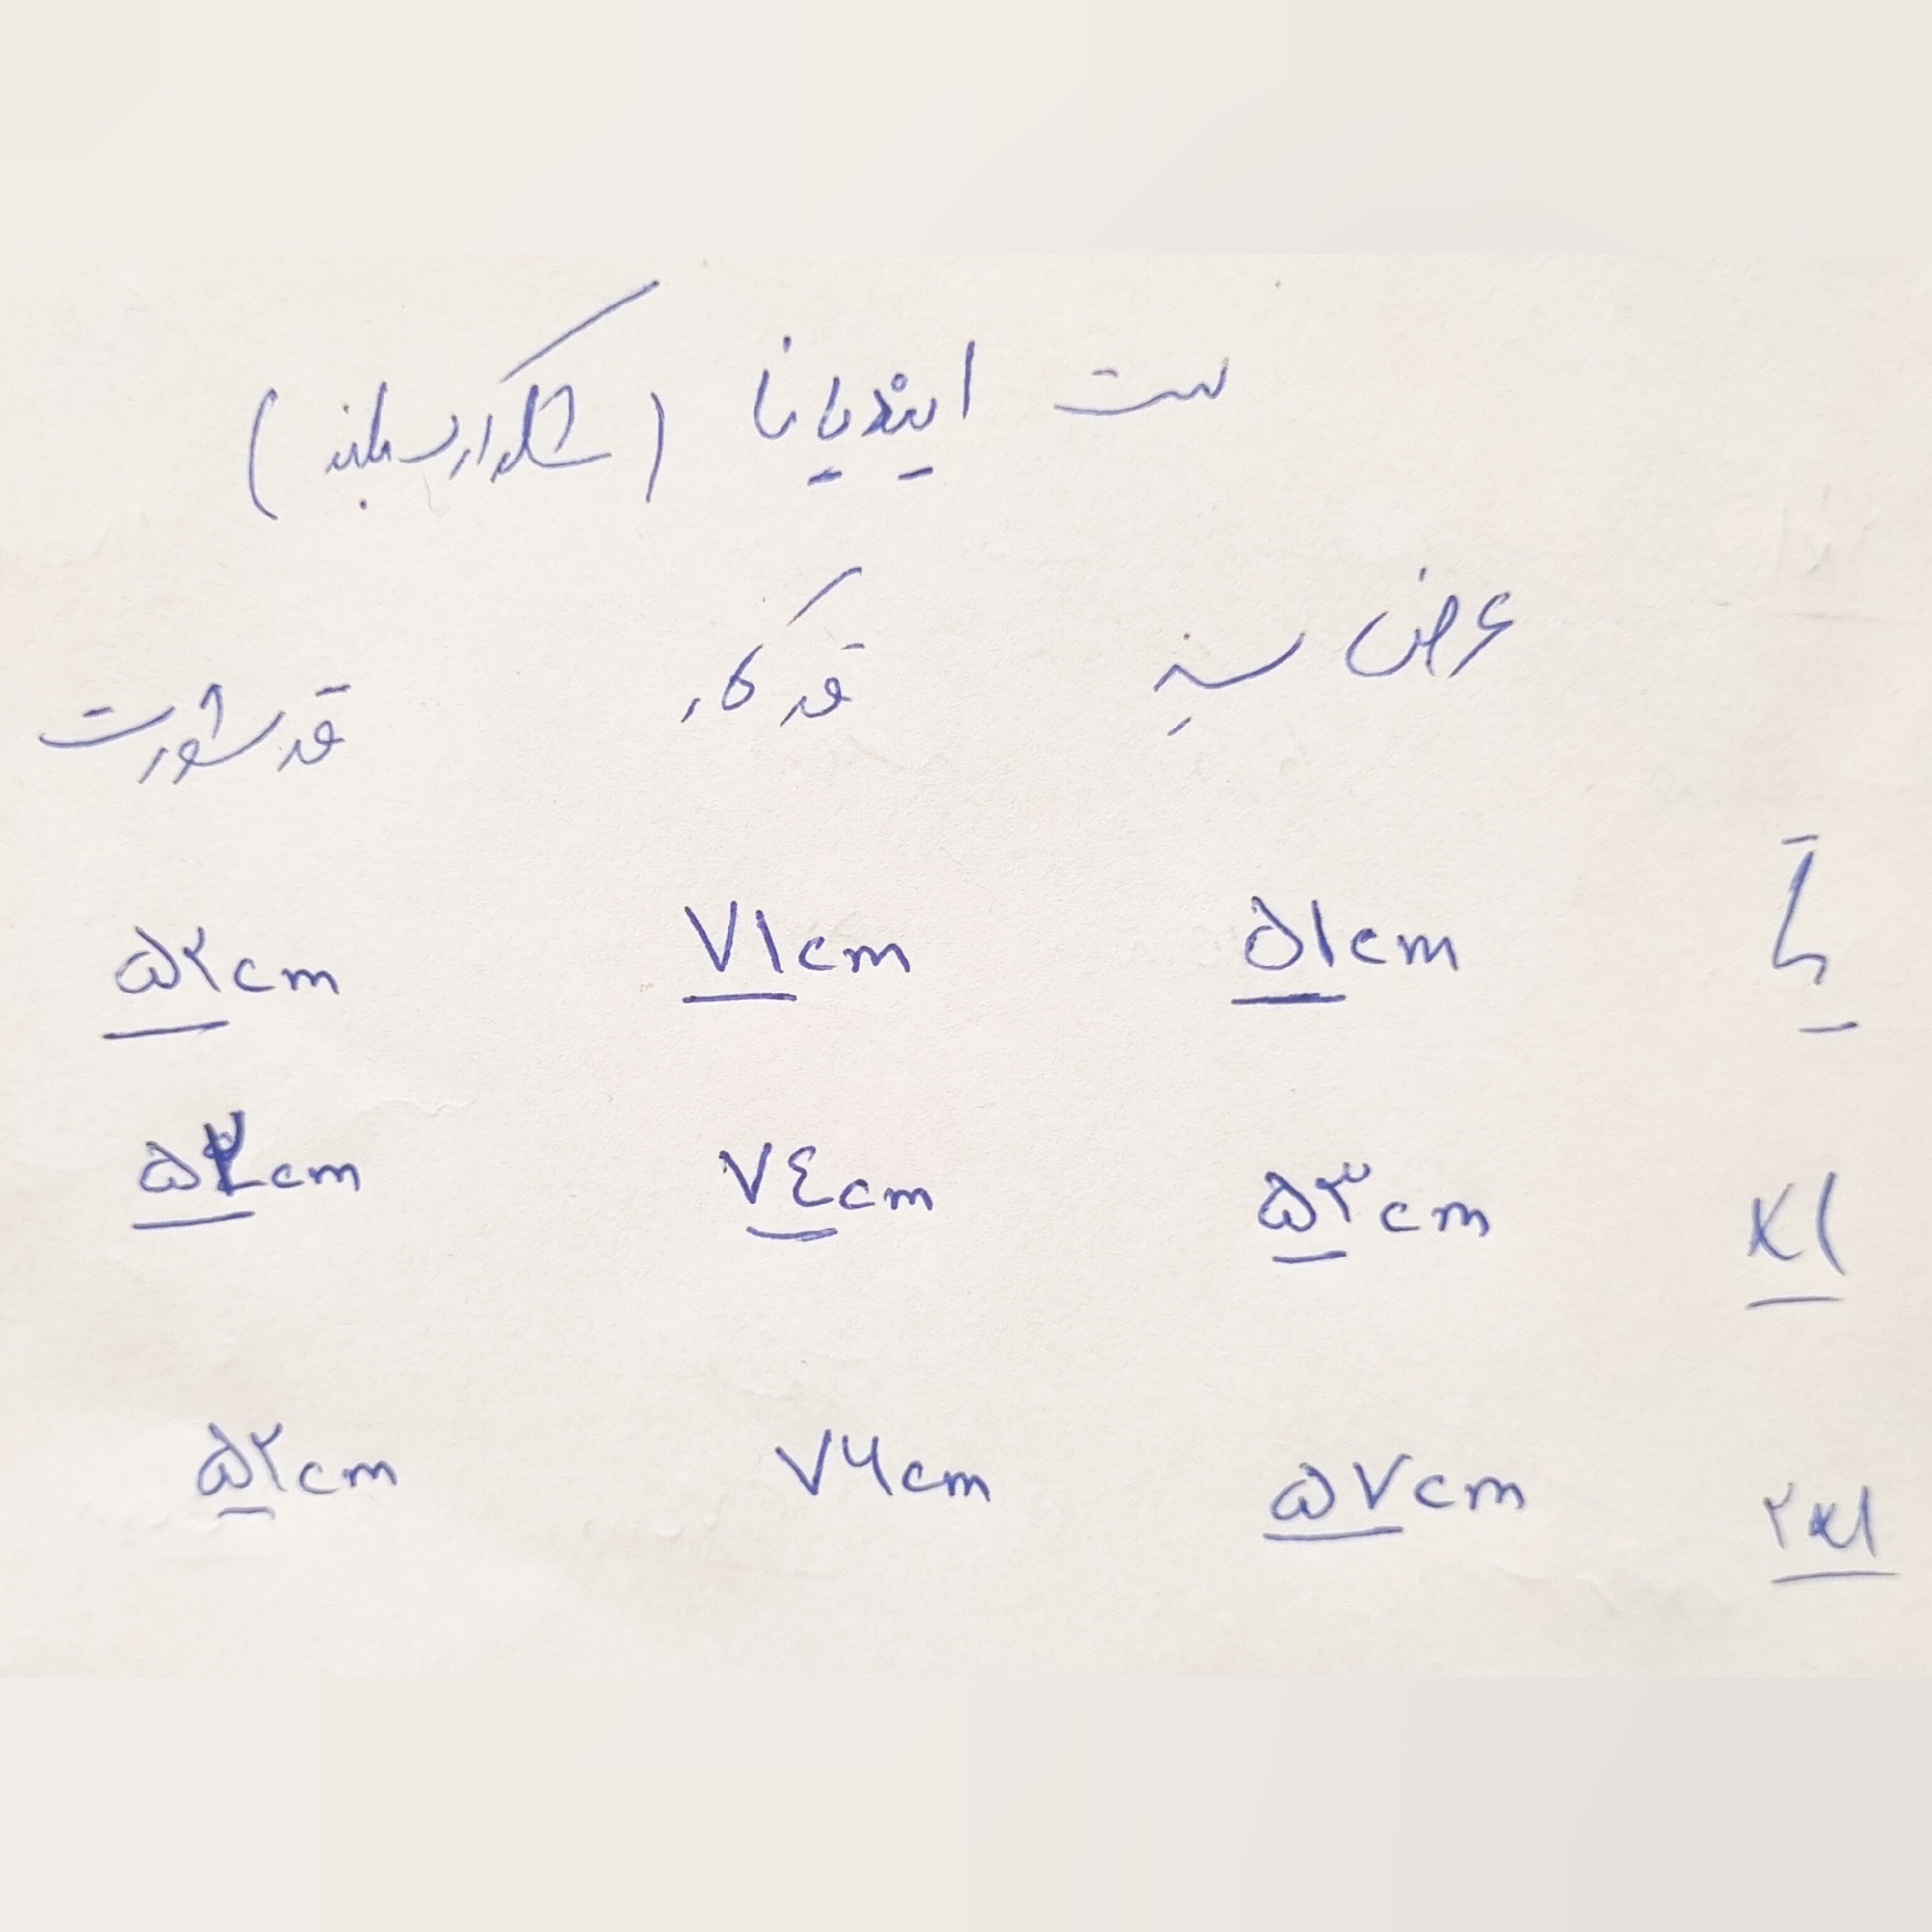 ست ایندیانا (شلوارک بلند)
عرض سینه قد کار قد شورت
L ۵۱cm ۷۱cm ۵۲cm
xl ۵۳cm ۷٤cm cm
۲xl ۵۷cm ۷۶cm ۵۲cm